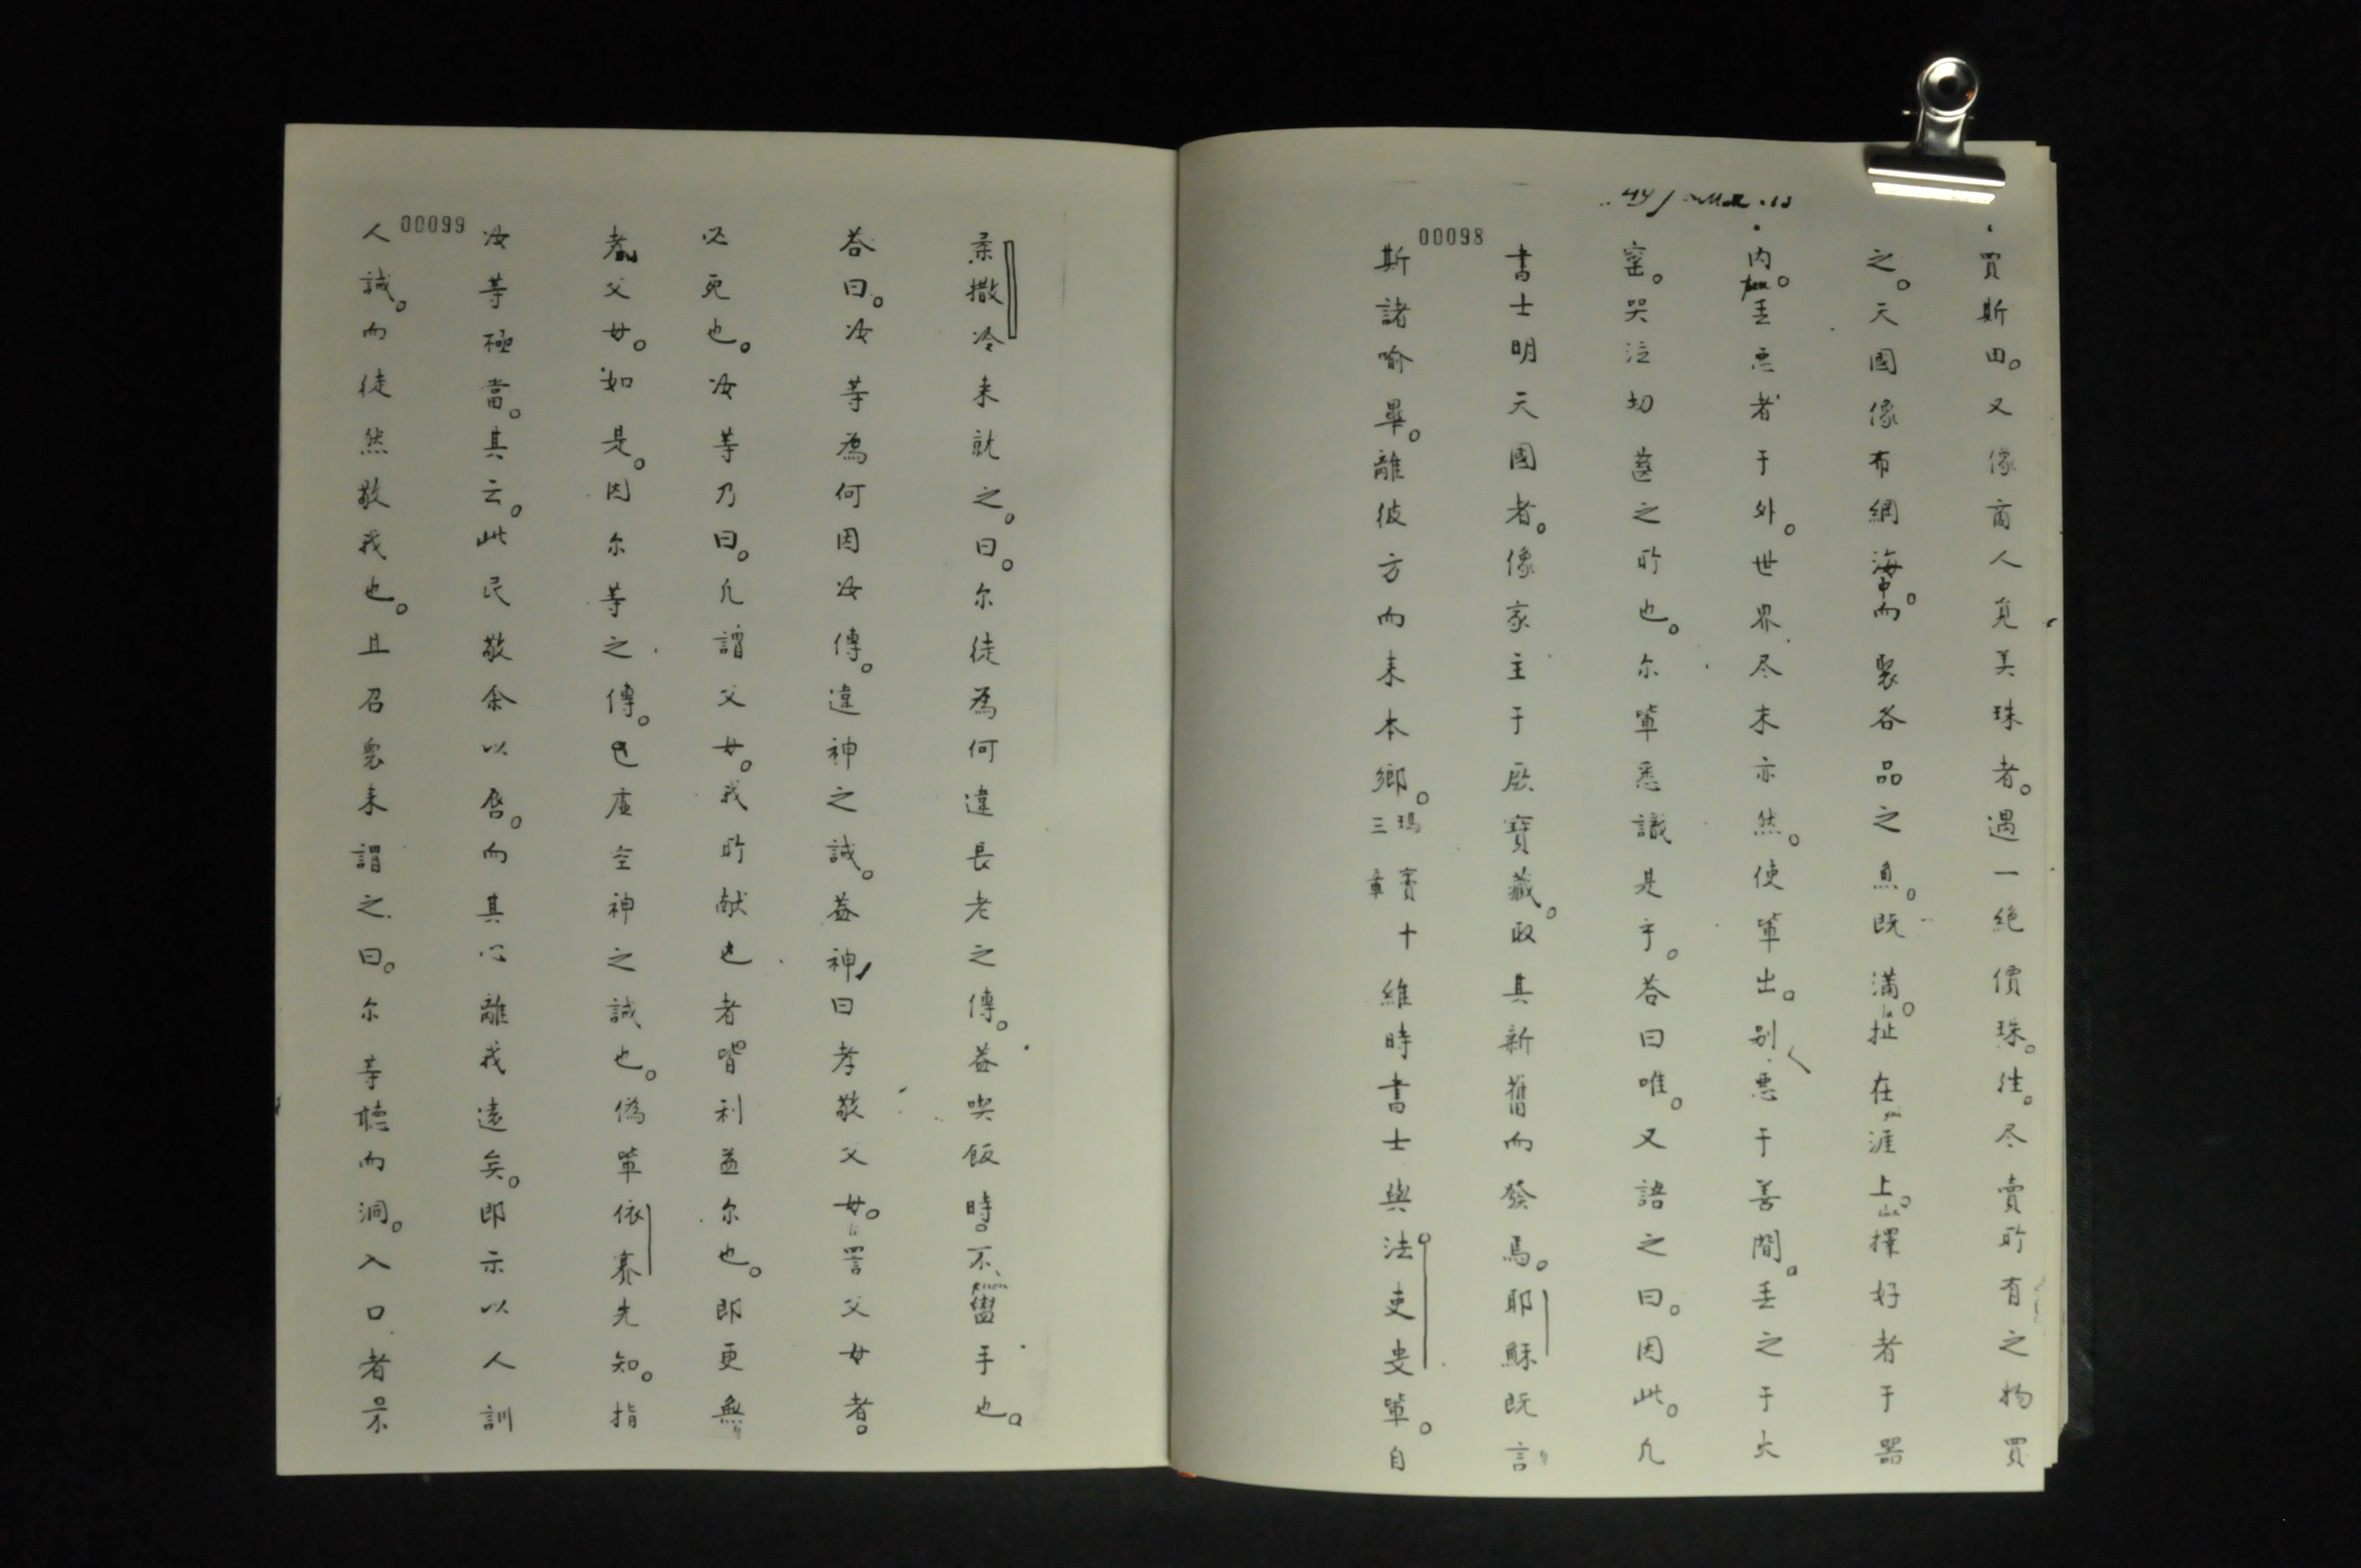 00098
買斯田。又像商人覓美珠者。遇一絶價珠。往。尽賣所有之物買
之。天國像布網海中。而聚各品之魚。既滿。扯在涯上。擇好者于器
内。丢悪者于外。世界尽末亦然。使軰出。别悪于善間。丢之于火
窑。哭泣切齒之所也。尔軰悉識是乎。荅曰唯。又語之曰。因此。凢
書士明天國者。像家主于厥寶藏。取其新舊而發焉。耶穌既言
斯諸喻畢。離彼方而来本鄉。瑪竇十三章 維時書士與法吏叟軰。自
00099
柔撒冷来就之。曰。尔徒為何違長老之傳。葢喫飯時。不盥手也。
荅曰。汝等為何因汝傳。違神之誡。葢神曰孝敬父母。詈父母者。
必死也。汝等乃曰。凢謂父母。我所献也者皆利益尔也。即更無
者父母。如是。因尔等之傳。也虚空神之誡也。偽軰依賽先知。指
汝等極當。其云。此民敬余以唇。而其心離我遠矣。即示以人訓
人誡。而徒然敬我也。且召衆来謂之曰。尔等聴而洞。入口者